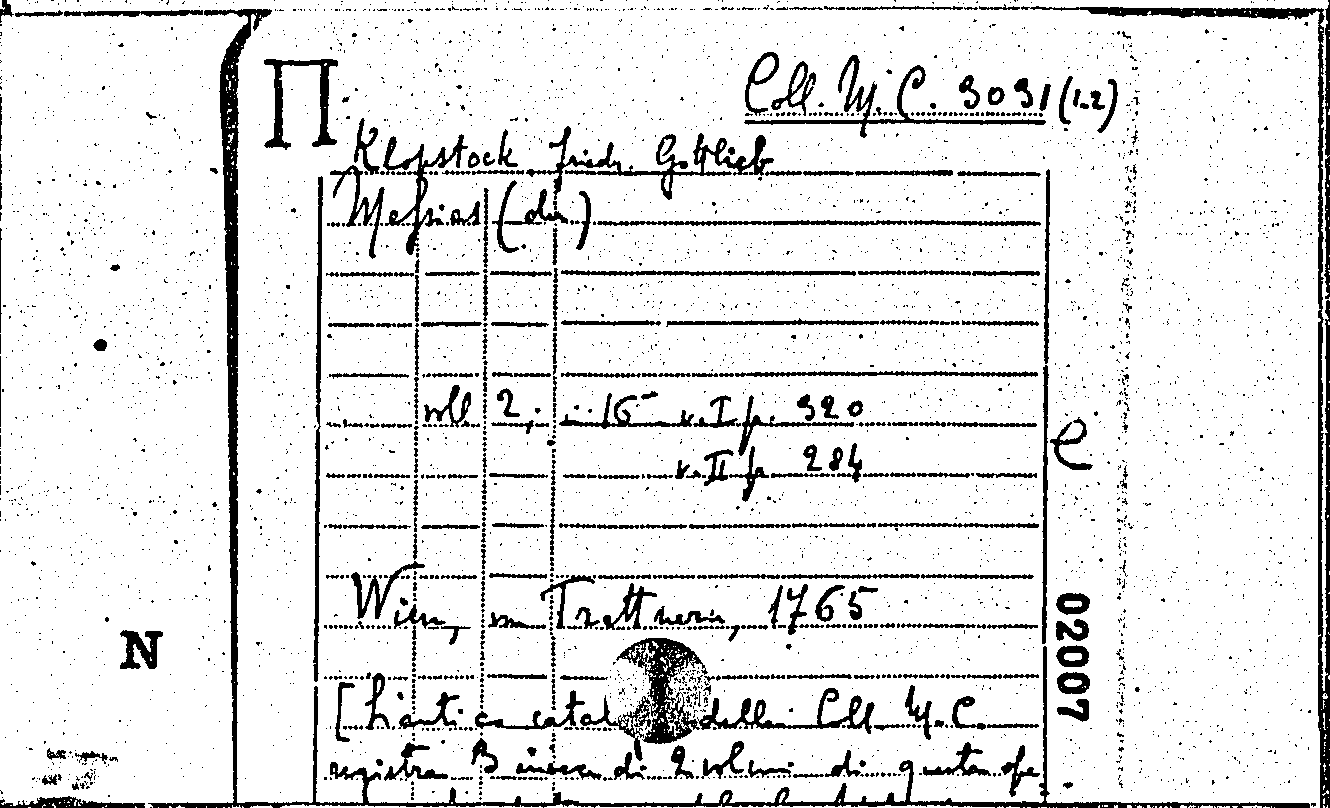 Π
Coll. M. C. 3031 (1-2)
Klopstock, Friedr. Gottlieb
Messias (der)
voll. 2, in-16° v. I p. 320
v. II p. 284
e
Wien, von Trattnern, 1765
N
02007
[L'antico catal della Coll. M. C.
registra invece di 2 volumi di questa ope